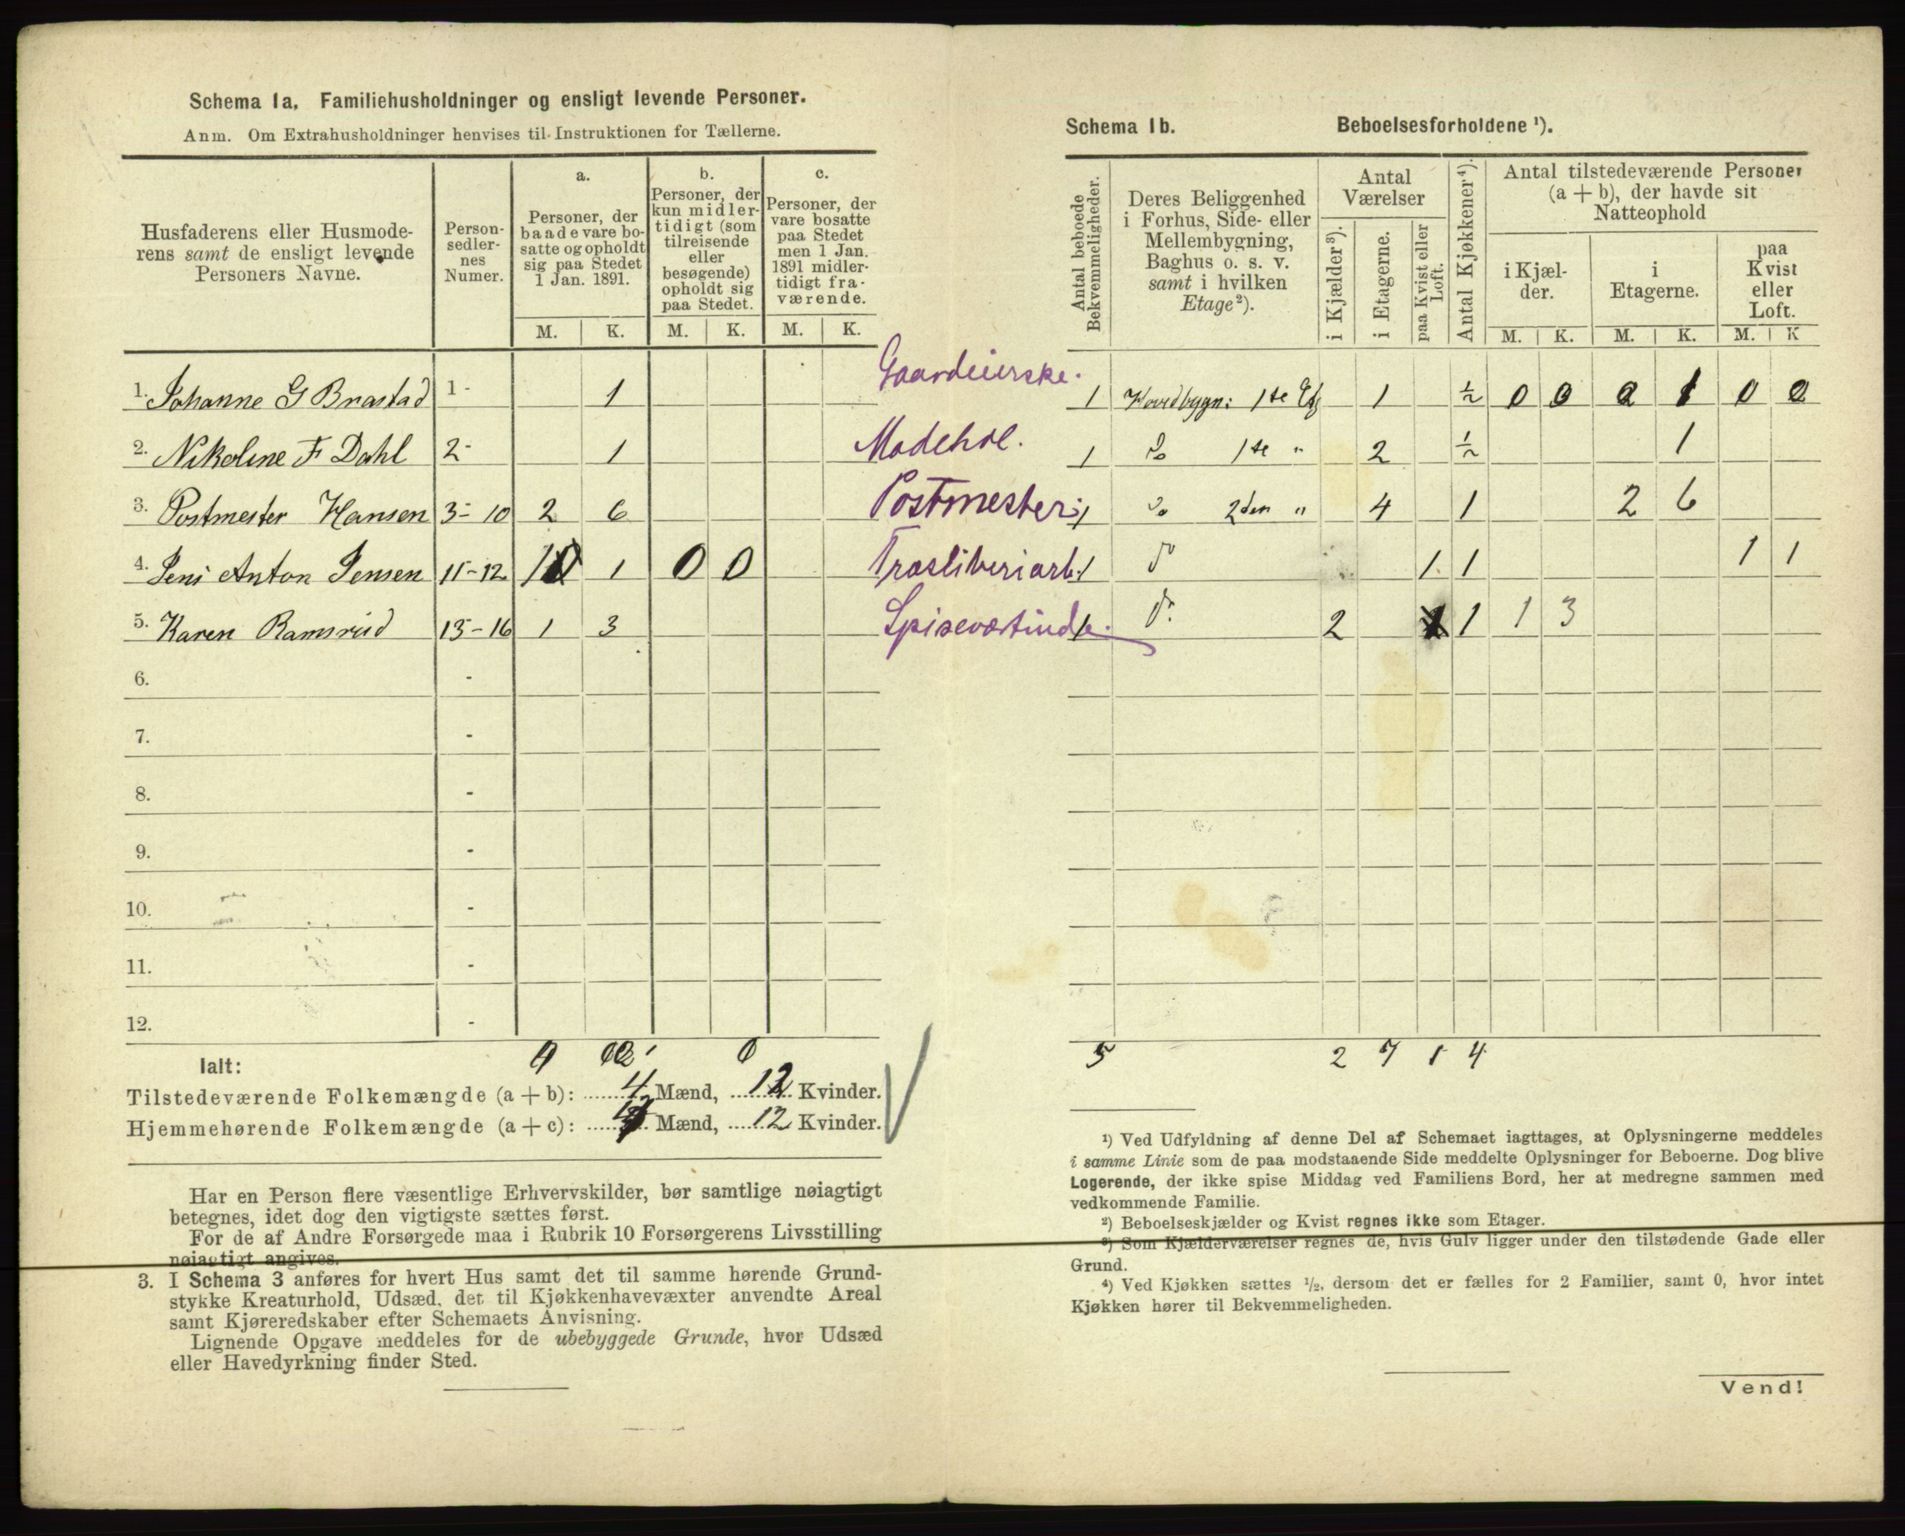 Schema 1a. Familiehusholdninger og ensligt levende Personer.
Anm. Om Extrahusholdninger henvises til Instruktionen for Tællerne.
Husfaderens eller Husmoderens samt de ensligt levende Personers Navne.
Personsedlernes Numer.
a. Personer, der baade vare bosatte og opholdt sig paa Stedet 1 Jan. 1891.
b. Personer, der kun midlertidigt (som tilreisende eller besøgende) opholdt sig paa Stedet.
c. Personer, der vare bosatte paa Stedet men 1 Jan. 1891 midlertidigt fraværende.
M. K. M. K. M. K.
1. Johanne G Brastad 1 - 1
2. Nikoline F Dahl 2 - 1
3. Postmester Hansen 3 - 10 2 6
4. Jens Anton Jensen 11 - 12 1 1 0 0
5. Karen Ramsrud 13 - 16 1 3
6. -
7. -
8. -
9. -
10. -
11. -
12. -
Ialt:
Tilstedeværende Folkemængde (a + b): 4 Mænd, 12 Kvinder.
Hjemmehørende Folkemængde (a + c): 4 Mænd, 12 Kvinder.
Har en Person flere væsentlige Erhvervskilder, bør samtlige nøiagtigt
betegnes, idet dog den vigtigste sættes først.
For de af Andre Forsørgede maa i Rubrik 10 Forsørgerens Livsstilling
nøiagtigt angives.
3. I Schema 3 anføres for hvert Hus samt det til samme hørende Grund-
stykke Kreaturhold, Udsæd, det til Kjøkkenhavevæxter anvendte Areal
samt Kjøreredskaber efter Schemaets Anvisning.
Lignende Opgave meddeles for de ubebyggede Grunde, hvor Udsæd
eller Havedyrkning finder Sted.
Schema 1b. Beboelsesforholdene ¹).
Antal beboede Bekvemmeligheder.
Deres Beliggenhed i Forhus, Side- eller Mellembygning, Baghus o. s. v. samt i hvilken Etage²).
Antal Værelser
i Kjælder³).
i Etagerne.
paa Kvist eller Loft.
Antal Kjøkkener⁴).
Antal tilstedeværende Personer (a + b), der havde sit Natteophold
i Kjælder.
i Etagerne.
paa Kvist eller Loft.
M. K. M. K. M. K
Gaardeierske. 1 Hovedbygn: 1ste Etg 1 ½ 0 0 0 1 0 0
Modehdl. 1 Do 1ste " 2 ½ 1
Postmester 1 Do 2den " 4 1 2 6
1 Do 1 1 1 1
Spiseværtinde. 1 Do. 2 1 1 3
5 2 7 1 4
¹) Ved Udfyldning af denne Del af Schemaet iagttages, at Oplysningerne meddeles
i samme Linie som de paa modstaaende Side meddelte Oplysninger for Beboerne. Dog blive
Logerende, der ikke spise Middag ved Familiens Bord, her at medregne sammen med
vedkommende Familie.
²) Beboelseskjælder og Kvist regnes ikke som Etager.
³) Som Kjælderværelser regnes de, hvis Gulv ligger under den tilstødende Gade eller
Grund.
⁴) Ved Kjøkken sættes ½, dersom det er fælles for 2 Familier, samt 0, hvor intet
Kjøkken hører til Bekvemmeligheden.
Vend!